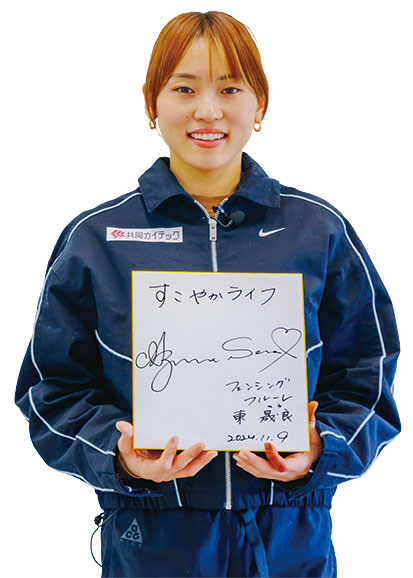 共同カイテック
すこやかライフ
Azuma Sera
フェンシング
フルーレ
東 晟良
2024.11.9
ACG